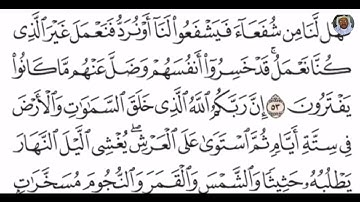 فَهَل لَّنَا مِن شُفَعَآءَ فَيَشْفَعُوا۟ لَنَآ أَوْ نُرَدُّ فَنَعْمَلَ غَيْرَ ٱلَّذِى
كُنَّا نَعْمَلُ ۚ قَدْ خَسِرُوٓا۟ أَنفُسَهُمْ وَضَلَّ عَنْهُم مَّا كَانُوا۟
يَفْتَرُونَ ٥٣ إِنَّ رَبَّكُمُ ٱللَّهُ ٱلَّذِى خَلَقَ ٱلسَّمَٰوَٰتِ وَٱلْأَرْضَ
فِى سِتَّةِ أَيَّامٍ ثُمَّ ٱسْتَوَىٰ عَلَى ٱلْعَرْشِ ۖ يُغْشِى ٱلَّيْلَ ٱلنَّهَارَ
يَطْلُبُهُۥ حَثِيثًا وَٱلشَّمْسَ وَٱلْقَمَرَ وَٱلنُّجُومَ مُسَخَّرَٰتٍۭ